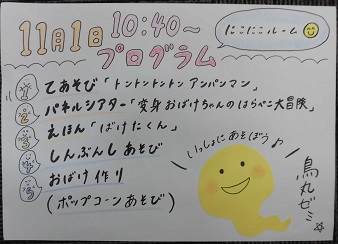 11月1日 10:40〜
プログラム
にこにこルーム
1 てあそび「トントントントン アンパンマン」
2 パネルシアター「変身おばけちゃんのはらぺこ大冒険」
3 えほん「ばけたくん」
4 しんぶんしあそび
5 おばけ作り
(ポップコーンあそび)
いっしょにあそぼう♪
鳥丸ゼミ☆